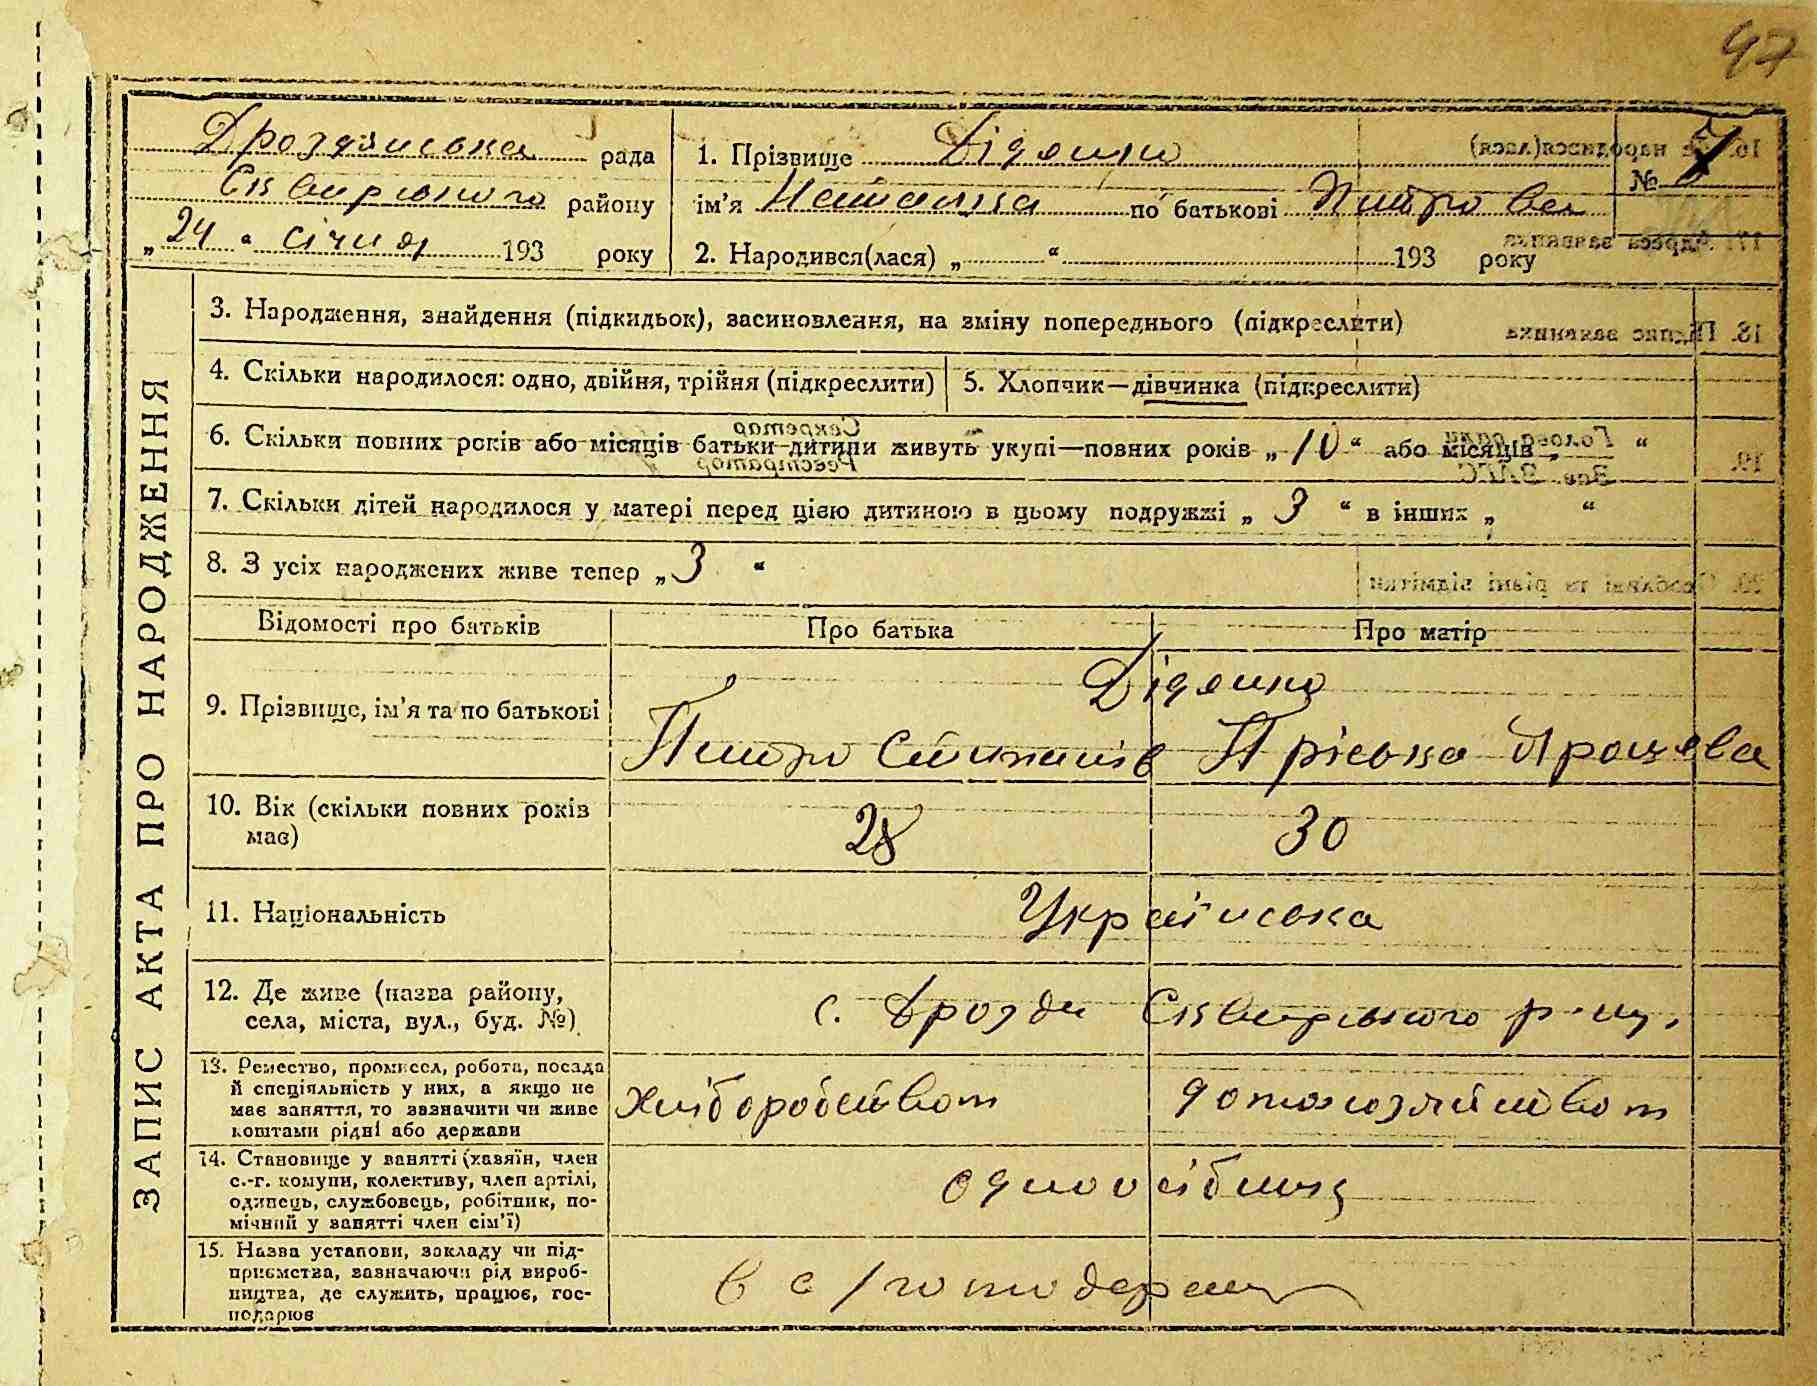 97
Дроздянська рада
Сквирського району
„24“ січня 193 року
1. Прізвище Діденко
№ 7
ім’я Наталка по батькові Петрова
2. Народився(лася) „ “ 193 року
ЗАПИС АКТА ПРО НАРОДЖЕННЯ
3. Народження, знайдення (підкидьок), засиновлення, на зміну попереднього (підкреслити)
4. Скільки народилося: одно, двійня, трійня (підкреслити)
5. Хлопчик—дівчинка (підкреслити)
6. Скільки повних років або місяців батьки дитини живуть укупі—повних років „10“ або місяців „ “
7. Скільки дітей народилося у матері перед цією дитиною в цьому подружжі „3“ в інших „ “
8. З усіх народжених живе тепер „3“
Відомості про батьків Про батька Про матір
9. Прізвище, ім’я та по батькові
Діденко
Петро Степанів Пріська
10. Вік (скільки повних років
має)
28 30
11. Національність
Українська
12. Де живе (назва району,
села, міста, вул., буд. №)
с. Дрозди Сквирського р-ну.
13. Ремество, промисел, робота, посада
й спеціяльність у них, а якщо не
має заняття, то зазначити чи живе
коштами рідні або держави
хліборобством домохозяйством
14. Становище у занятті (хазяїн, член
с.-г. комуни, колективу, член артілі,
одинець, службовець, робітник, по-
мічний у занятті член сім’ї)
одноосібниця
15. Назва установи, закладу чи під-
приємства, зазначаючи рід вироб-
ництва, де служить, працює, гос-
подарює
в с/господарстві
16. народився(лася)
17. Адреса заявника
18. Підпис заявника
19. Голова ради
Зав. ЗАГС
Секретар
Реєстратор
20. Особливі та різні відмітки